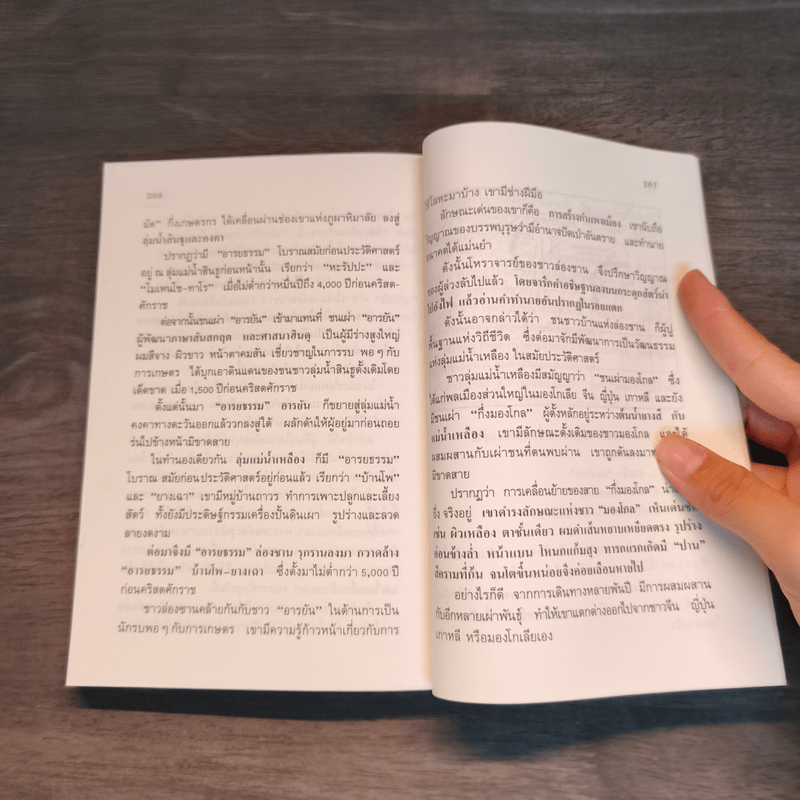 มัด” กึ่งเกษตรกร ได้เคลื่อนผ่านช่องเขาแห่งภูผาหิมาลัย ลงสู่
ลุ่มน้ำสินธุและคงคา
ปรากฏว่ามี “อารยธรรม” โบราณสมัยก่อนประวัติศาสตร์
อยู่ ณ ลุ่มแม่น้ำสินธูก่อนหน้านั้น เรียกว่า “หะรัปปะ” และ
“โมเหนโช-ทาโร” เมื่อไม่ต่ำกว่าหมื่นปีถึง 4,000 ปีก่อนคริสต-
ศักราช
ต่อจากนั้นชนเผ่า “อารยัน” เข้ามาแทนที่ ชนเผ่า “อารยัน”
ผู้พัฒนาภาษาสันสกฤต และศาสนาฮินดู เป็นผู้มีร่างสูงใหญ่
ผมสีจาง ผิวขาว หน้าตาคมสัน เชี่ยวชาญในการรบ พอ ๆ กับ
การเกษตร ได้บุกเอาดินแดนของชนชาวลุ่มน้ำสินธุดั้งเดิมโดย
เด็ดขาด เมื่อ 1,500 ปีก่อนคริสตศักราช
ตั้งแต่นั้นมา “อารยธรรม” อารยัน ก็ขยายสู่ลุ่มแม่น้ำ
คงคาทางตะวันออกแล้ววกลงสู่ใต้ ผลักดันให้ผู้อยู่มาก่อนถอย
ร่นไปข้างหน้ามิขาดสาย
ในทำนองเดียวกัน ลุ่มแม่น้ำเหลือง ก็มี “อารยธรรม”
โบราณ สมัยก่อนประวัติศาสตร์อยู่ก่อนแล้ว เรียกว่า “บ้านโพ”
และ “ยางเฉา” เขามีหมู่บ้านถาวร ทำการเพาะปลูกและเลี้ยง
สัตว์ ทั้งยังมีประดิษฐ์กรรมเครื่องปั้นดินเผา รูปร่างและลวด
ลายงดงาม
ต่อมาจึงมี “อารยธรรม” ล่องชาน รุกรานลงมา กวาดล้าง
“อารยธรรม” บ้านโพ-ยางเฉา ซึ่งตั้งมาไม่ต่ำกว่า 5,000 ปี
ก่อนคริสตศักราช
ชาวล่องชานคล้ายกันกับชาว “อารยัน” ในด้านการเป็น
นักรบพอ ๆ กับการเกษตร เขามีความรู้ก้าวหน้าเกี่ยวกับการ
267
ใช้โลหะมาบ้าง เขามีช่างฝีมือ
ลักษณะเด่นของเขาก็คือ การสร้างกำแพงเมือง เขานับถือ
วิญญาณของบรรพบุรุษว่ามีอำนาจปัดเป่าอันตราย และทำนาย
อนาคตได้แม่นยำ
ดังนั้นโหราจารย์ของชาวล่องชาน จึงปรึกษาวิญญาณ
ของผู้ล่วงลับไปแล้ว โดยจารึกคำอธิษฐานลงบนกระดูกสัตว์นำ
ไปยังไฟ แล้วอ่านคำทำนายอันปรากฏในรอยแตก
ดังนั้นอาจกล่าวได้ว่า ชนชาวบ้านแห่งล่องชาน ก็ผู้ปู
พื้นฐานแห่งวิถีชีวิต ซึ่งต่อมาจักมีพัฒนาการเป็นวัฒนธรรม
แห่งลุ่มแม่น้ำเหลือง ในสมัยประวัติศาสตร์
ชาวลุ่มแม่น้ำเหลืองมีสมัญญาว่า “ชนเผ่ามองโกล” ซึ่ง
ได้แก่พลเมืองส่วนใหญ่ในมองโกเลีย จีน ญี่ปุ่น เกาหลี และยัง
มีชนเผ่า “กึ่งมองโกล” ผู้ตั้งหลักอยู่ระหว่างต้นน้ำยางสี กับ
แม่น้ำเหลือง เขามีลักษณะดั้งเดิมของชาวมองโกล และได้
ผสมผสานกับเผ่าชนที่ตนพบผ่าน เขาถูกดันลงมาท
มิขาดสาย
ปรากฏว่า การเคลื่อนย้ายของสาย “กึ่งมองโกล”
ยิ่ง จริงอยู่ เขาดำรงลักษณะแห่งชาว “มองโกล” เห็นเด่นชัด
เช่น ผิวเหลือง ตาชั้นเดียว ผมดำเส้นหยาบเหยียดตรง รูปร่าง
ค่อนข้างล่ำ หน้าแบน โหนกแก้มสูง ทารกแรกเกิดมี “ปาน”
สีครามที่ก้น จนโตขึ้นหน่อยจึงค่อยเลือนหายไป
อย่างไรก็ดี จากการเดินทางหลายพันปี มีการผสมผสาน
กับอีกหลายเผ่าพันธุ์ ทำให้เขาแตกต่างออกไปจากชาวจีน ญี่ปุ่น
เกาหลี หรือมองโกเลียเอง